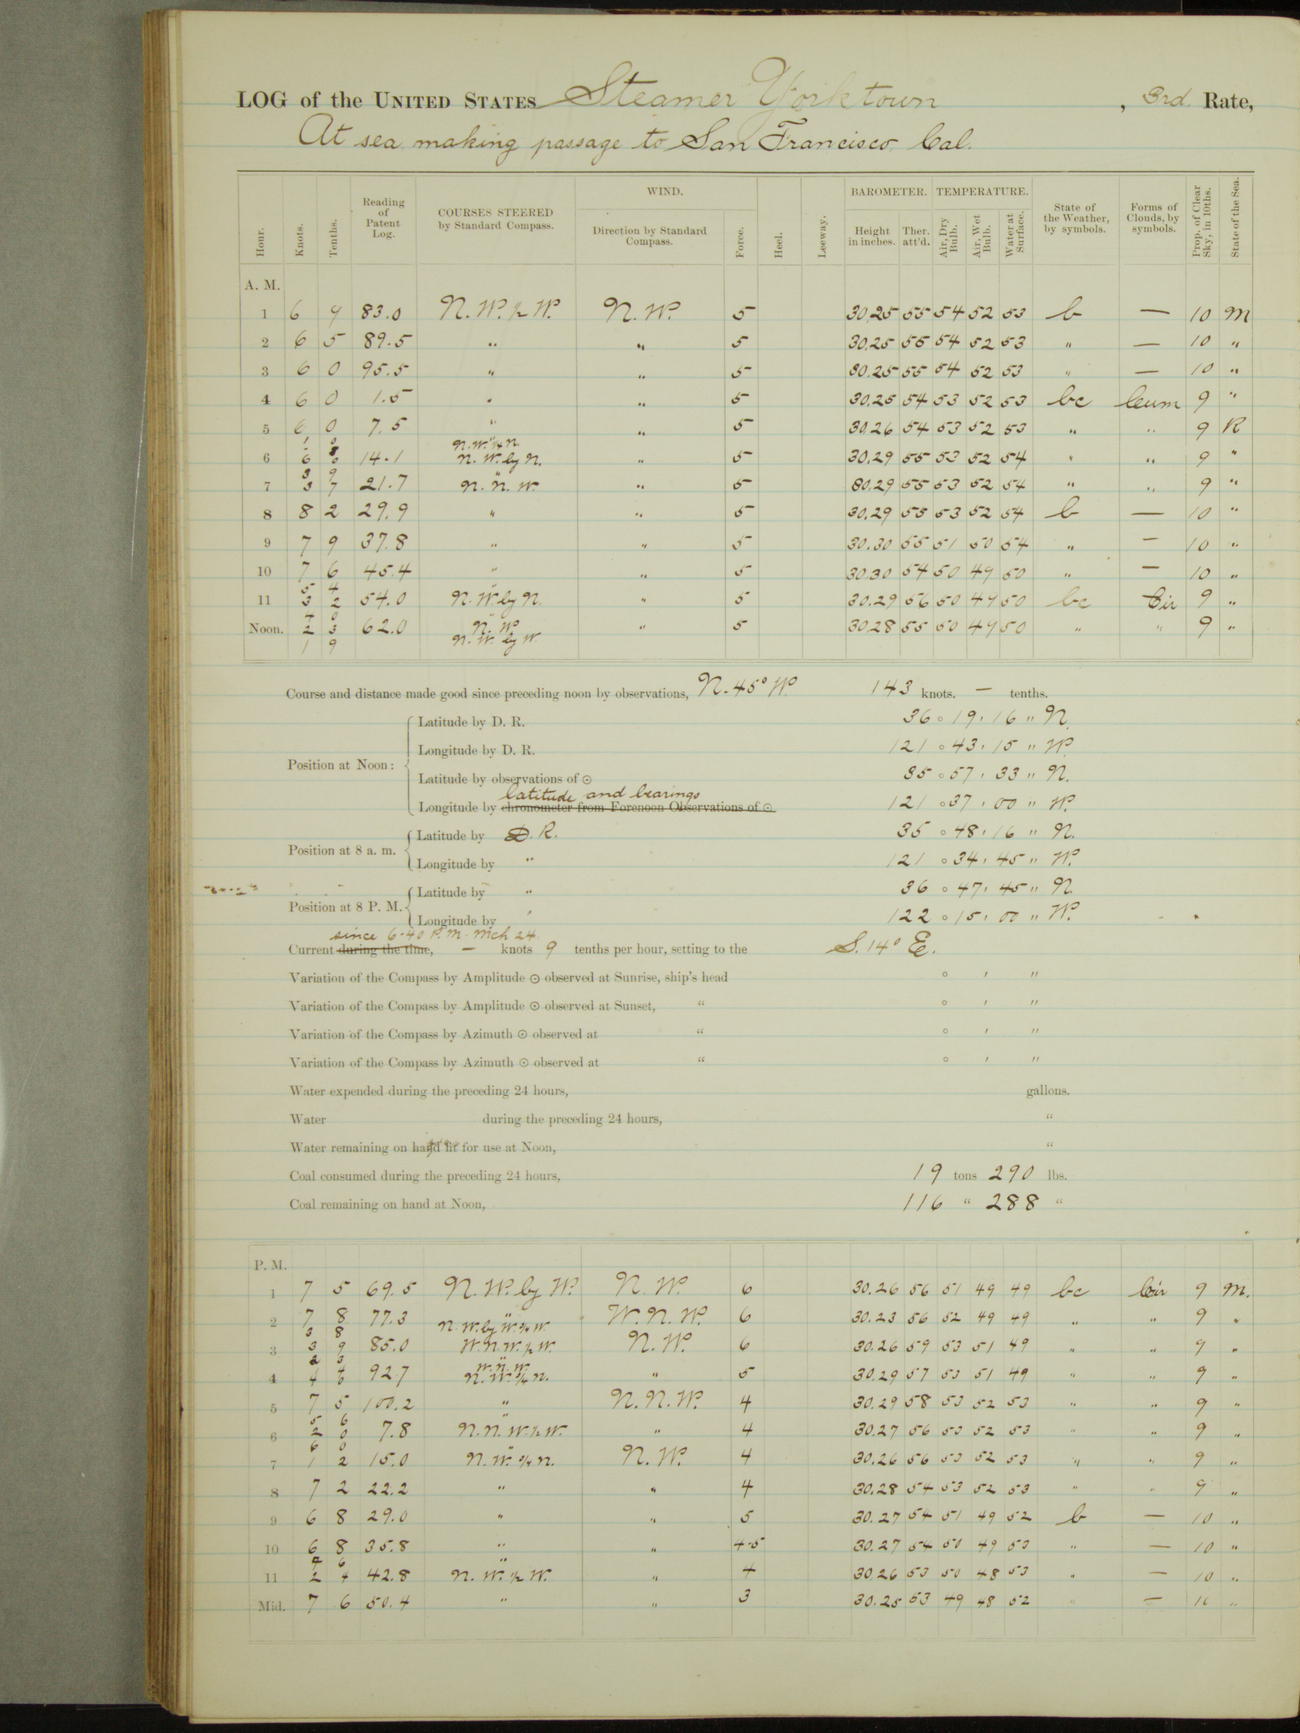 LOG of the UNITED STATES Steamer Yorktown , 3rd Rate,
At sea making passage to San Francisco Cal.
Hour. Knots. Tenths. Reading of Patent Log. COURSES STEERED by Standard Compass. WIND. Direction by Standard Compass. Force. Heel. Leeway. BAROMETER. Height in inches. Ther. att'd. TEMPERATURE. Air, Dry Bulb. Air, Wet Bulb. Water at Surface. State of the Weather, by symbols. Forms of Clouds, by symbols. Prop. of Clear Sky, in 10ths. State of the Sea.
A. M.
1 6 9 83.0 N.W. ½ W. N.W. 5 30.25 55 54 52 53 b — 10 M
2 6 5 89.5 " " 5 30.25 55 54 52 53 " — 10 "
3 6 0 95.5 " " 5 30.25 55 54 52 53 " — 10 "
4 6 0 1.5 " " 5 30.25 54 53 52 53 bc Cum 9 "
5 6 0 7.5 " " 5 30.26 54 53 52 53 " " 9 R
N.W. ¾ N.
6 6 14.1 N.W. by N. " 5 30.29 55 53 52 54 " " 9 "
3 9
7 3 7 21.7 N.N.W. " 5 30.29 55 53 52 54 " " 9 "
8 8 2 29.9 " " 5 30.29 55 53 52 54 b — 10 "
9 7 9 37.8 " " 5 30.30 55 51 50 54 " — 10 "
10 7 6 45.4 " " 5 30.30 54 50 49 50 " — 10 "
5 4
11 3 2 54.0 N.W. by N. " 5 30.29 56 50 49 50 bc Cir 9 "
Noon. 2 3 62.0 N.W. " 5 30.28 55 50 49 50 " " 9 "
1 9 N.W. by W.
Course and distance made good since preceding noon by observations, N. 45° W. 143 knots. — tenths.
Position at Noon:
Latitude by D. R. 36 ° 19 ' 16 " N.
Longitude by D. R. 121 ° 43 ' 15 " W.
Latitude by observations of ☉ 35 ° 57 ' 33 " N.
latitude and bearings
Longitude by chronometer from Forenoon Observations of ☉ 121 ° 37 ' 00 " W.
Position at 8 a. m.
Latitude by D. R. 35 ° 48 ' 16 " N.
Longitude by " 121 ° 34 ' 45 " W.
Position at 8 P. M.
Latitude by " 36 ° 47 ' 45 " N.
Longitude by " 122 ° 15 ' 00 " W.
since 6-40 P.M. Mch 24
Current during the time, — knots 9 tenths per hour, setting to the S. 14° E.
Variation of the Compass by Amplitude ☉ observed at Sunrise, ship's head ° ' "
Variation of the Compass by Amplitude ☉ observed at Sunset, " ° ' "
Variation of the Compass by Azimuth ☉ observed at " ° ' "
Variation of the Compass by Azimuth ☉ observed at " ° ' "
Water expended during the preceding 24 hours, gallons.
Water during the preceding 24 hours, "
Water remaining on hand fit for use at Noon, "
Coal consumed during the preceding 24 hours, 19 tons 290 lbs.
Coal remaining on hand at Noon, 116 " 288 "
P. M.
1 7 5 69.5 N.W. by W. N.W. 6 30.26 56 51 49 49 bc Cir 9 M.
2 7 8 77.3 " W.N.W. 6 30.23 56 52 49 49 " " 9 "
3 8 N.W. by W. ¾ W.
3 3 9 85.0 W.N.W. ½ W. N.W. 6 30.26 59 53 51 49 " " 9 "
W.N.W.
4 4 6 92.7 N.W. ¾ N. " 5 30.29 57 53 51 49 " " 9 "
5 7 5 100.2 " N.N.W. 4 30.29 58 53 52 53 " " 9 "
5 6 "
6 2 0 7.8 N.N.W. ½ W. " 4 30.27 56 53 52 53 " " 9 "
6 0 "
7 1 2 15.0 N.W. ¾ N. N.W. 4 30.26 56 53 52 53 " " 9 "
8 7 2 22.2 " " 4 30.28 54 53 52 53 " " 9 "
9 6 8 29.0 " " 5 30.27 54 51 49 52 b — 10 "
10 6 8 35.8 " " 4-5 30.27 54 50 49 53 " — 10 "
4 6 "
11 2 4 42.8 N.W. ½ W. " 4 30.26 53 50 48 53 " — 10 "
Mid. 7 6 50.4 " " 3 30.25 53 49 48 52 " — 10 "